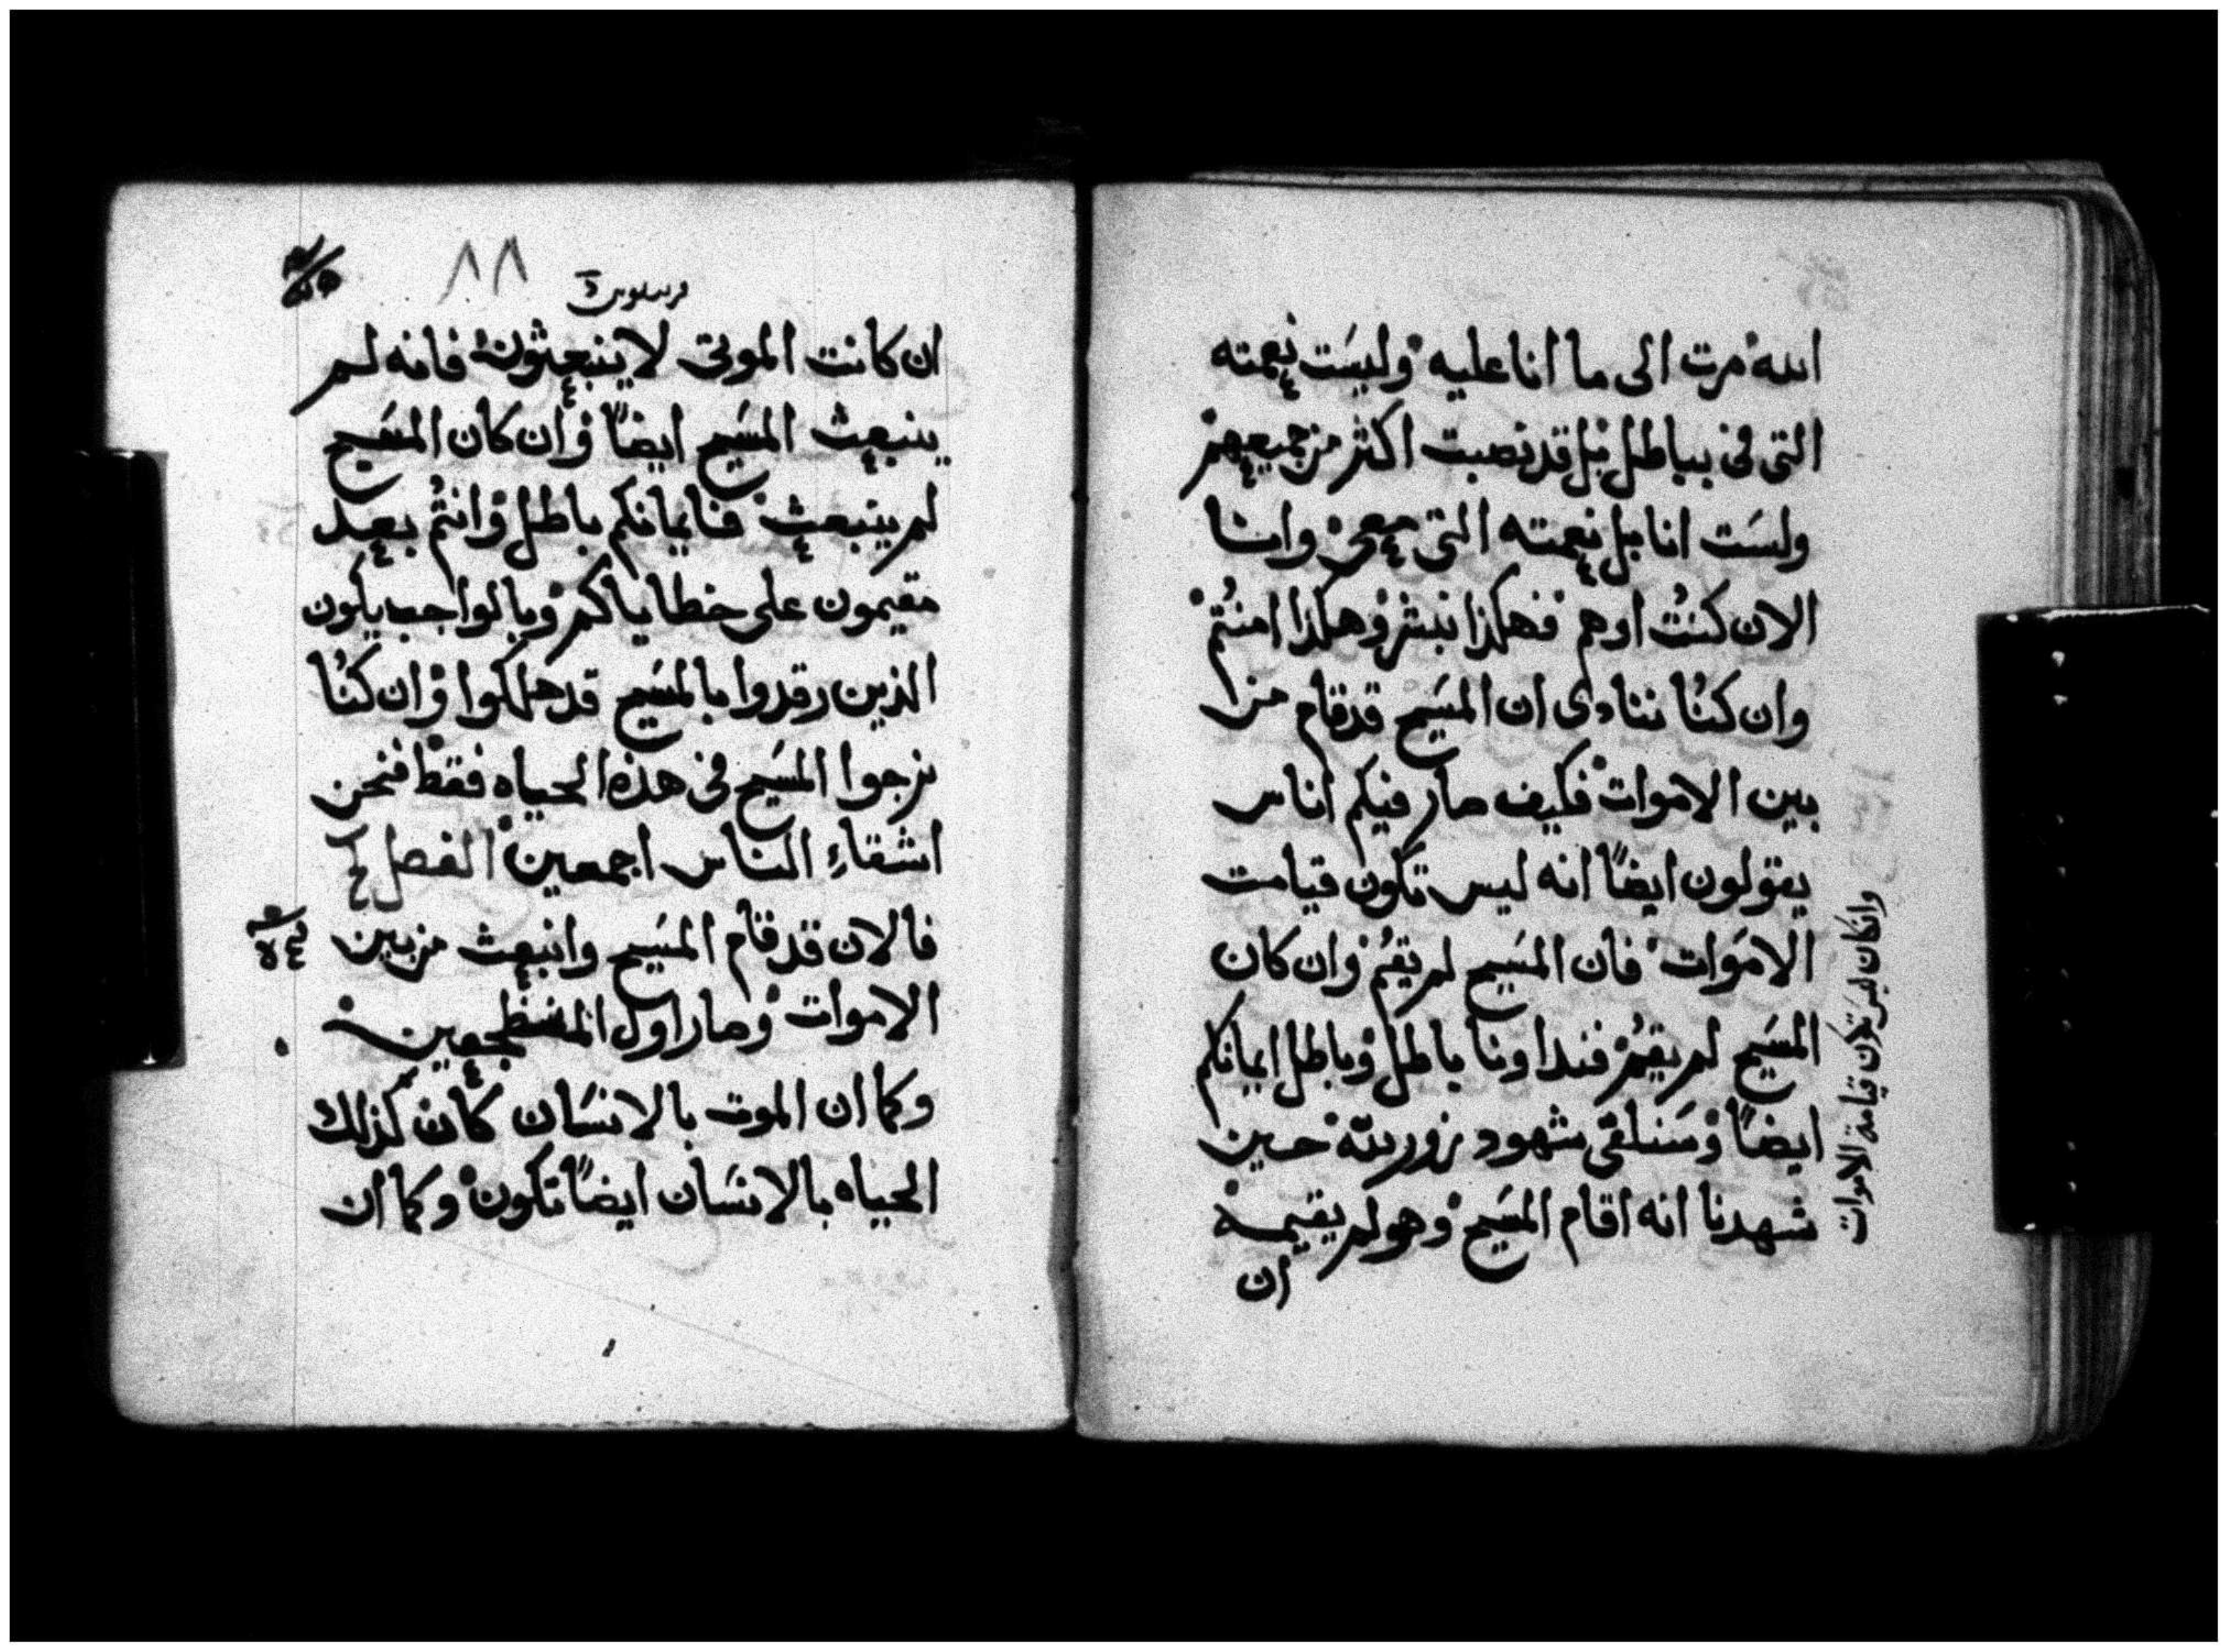 الله صرت الى ما انا عليه وليست نعمته
التى فى بباطل بل قد نصبت اكثر من جميعهم
ولست انا بل نعمته التى معى وانا
الان كنت اوهم فهكذا نبشر وهكذا امنتم
وان كنا ننادى ان المسيح قد قام من
بين الاموات فكيف صار فيكم اناس
يقولون ايضاً انه ليس تكون قيامت
الاموات فان المسيح لم يقم وان كان
المسيح لم يقم فنداونا باطل وباطل ايمانكم
ايضاً وسنلقى شهود زور لله حين
شهدنا انه اقام المسيح وهو لم يقيمه
ان
وانكان لم تكن قيامة الاموات
٨٨
ان كانت الموتى لا ينبعثون فانه لم
ينبعث المسيح ايضاً وان كان المسيح
لم ينبعث فايمانكم باطل وانتم بعد
مقيمون على خطاياكم وبالواجب يكون
الذين رقدوا بالمسيح قد هلكوا وان كنا
نرجوا المسيح فى هذه الحياه فقط فنحن
اشقاء الناس اجمعين الفصل
فالان قد قام المسيح وانبعث من بين
الاموات وصار اول المضطجعين
وكما ان الموت بالانسان كان كذلك
الحياه بالانسان ايضاً تكون وكما ان